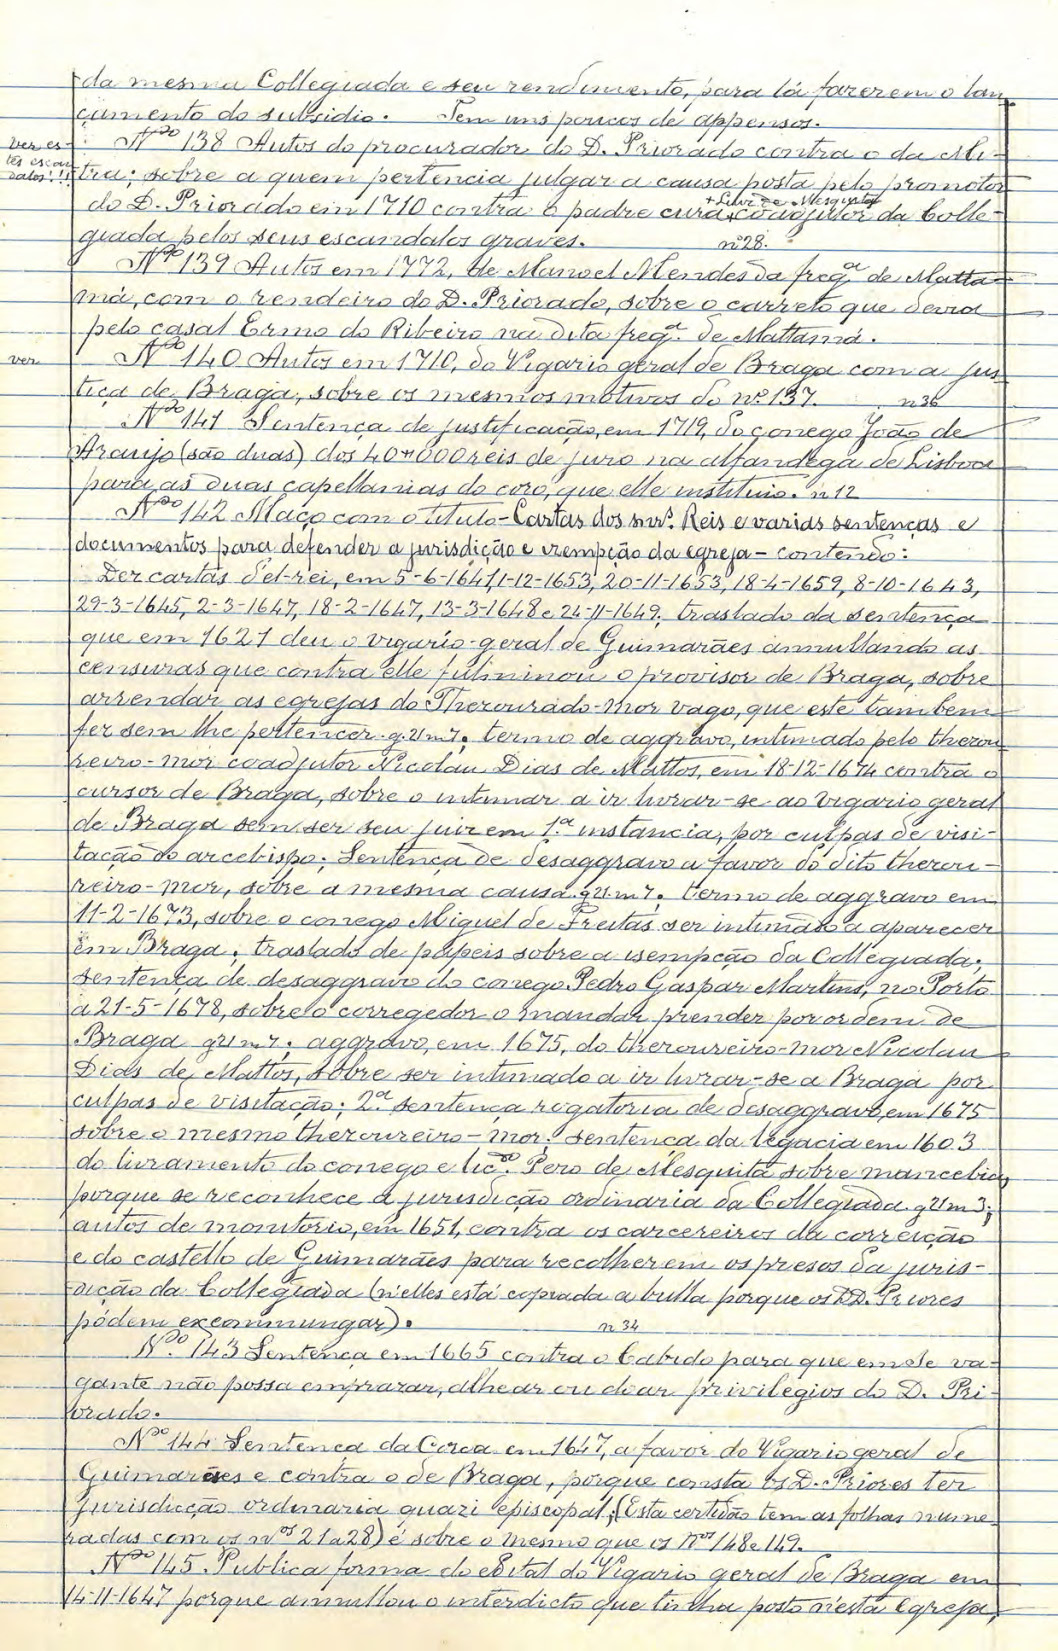 da mesma Collegiada e seu rendimento, para lá fazerem o lan
çamento do subsidio. Tem uns poucos de appensos.
ver es-
tes escan
dalos!!!
Nº 138 Autos do procurador do D. Priorado contra o da Mi-
tra; sobre a quem pertencia julgar a causa posta pelo promotor
+ Silva de Mesquita
do D. Priorado em 1710 contra o padre cura + coadjutor da Colle-
giada pelos seus escandalos graves. nº 28.
Nº 139 Autos em 1772, de Manoel Mendes da fregª de Matta-
má, com o rendeiro do D. Priorado, sobre o carreto que devia
pelo casal Ermo do Ribeiro na dita fregª de Mattamá.
ver
Nº 140 Autos em 1710, do Vigario geral de Braga com a jus
tiça de Braga, sobre os mesmos motivos do nº 137. n 36
Nº 141 Sentença de justificação, em 1719, do conego João de
Araujo (são duas) dos 40#000 reis de juro na alfandega de Lisboa
para as duas capellanias do coro, que elle instituio. n 12
Nº 142 Maço com o titulo - Cartas dos snrs. Reis e varias sentenças e
documentos para defender a jurisdição e izempção da egreja - contendo:
Dez cartas d'el-rei, em 5-6-1641, 1-12-1653, 20-11-1653, 18-4-1659, 8-10-1643,
29-3-1645, 2-3-1647, 18-2-1647, 13-3-1648 e 24-11-1649; traslado da sentença
que em 1621 deu o vigario geral de Guimarães annullando as
censuras que contra elle fulminou o provisor de Braga, sobre
arrendar as egrejas do Thezourado-mor vago, que este tambem
fez sem lhe pertencer g 21 m 7; termo de aggravo, intimado pelo thezou
reiro-mor coadjutor Nicolau Dias de Mattos, em 18-12-1674 contra o
cursor de Braga, sobre o intimar a ir livrar-se ao vigario geral
de Braga sem ser seu juiz em 1.ª instancia, por culpas de visi-
tação do arcebispo; Sentença de desaggravo a favor do dito thezou-
reiro-mor, sobre a mesma causa g 21 m 7. termo de aggravo em
11-2-1673, sobre o conego Miguel de Freitas ser intimado a aparecer
em Braga; traslado de papeis sobre a isempção da Collegiada;
sentença de desaggravo do conego Pedro Gaspar Martins, no Porto
a 21-5-1678, sobre o corregedor o mandar prender por ordem de
Braga g 21 m 7; aggravo, em 1675, do thezoureiro-mor Nicolau
Dias de Mattos, sobre ser intimado a ir livrar-se a Braga por
culpas de visitação; 2.ª sentença rogatoria de desaggravo, em 1675
sobre o mesmo thezoureiro-mor; sentença da legacia em 1603
do livramento do conego e licdo. Pero de Mesquita sobre mancebia,
porque se reconhece a jurisdição ordinaria da Collegiada g 21 m 3;
autos de monitorio, em 1651, contra os carcereiros da correição
e do castello de Guimarães para recolherem os presos da juris-
dição da Collegiada (n'elles está copiada a bulla porque os DD. Priores
pódem excommungar). n 34
Nº 143 Sentença em 1665 contra o Cabido para que em sé va-
gante não possa emprazar, alhear ou doar privilegios do D. Pri-
orado.
Nº 144 Sentença da Coroa em 1647, a favor do Vigario geral de
Guimarães e contra o de Braga, porque consta os D. Priores ter
jurisdicção ordinaria quazi episcopal; (Esta certidão tem as folhas nume-
radas com os nos 21 a 28) é sobre o mesmo que os nos 148 e 149.
Nº 145. Publica forma do edital do Vigario geral de Braga em
14-11-1647 porque annullou o interdicto que tinha posto n'esta Egreja,